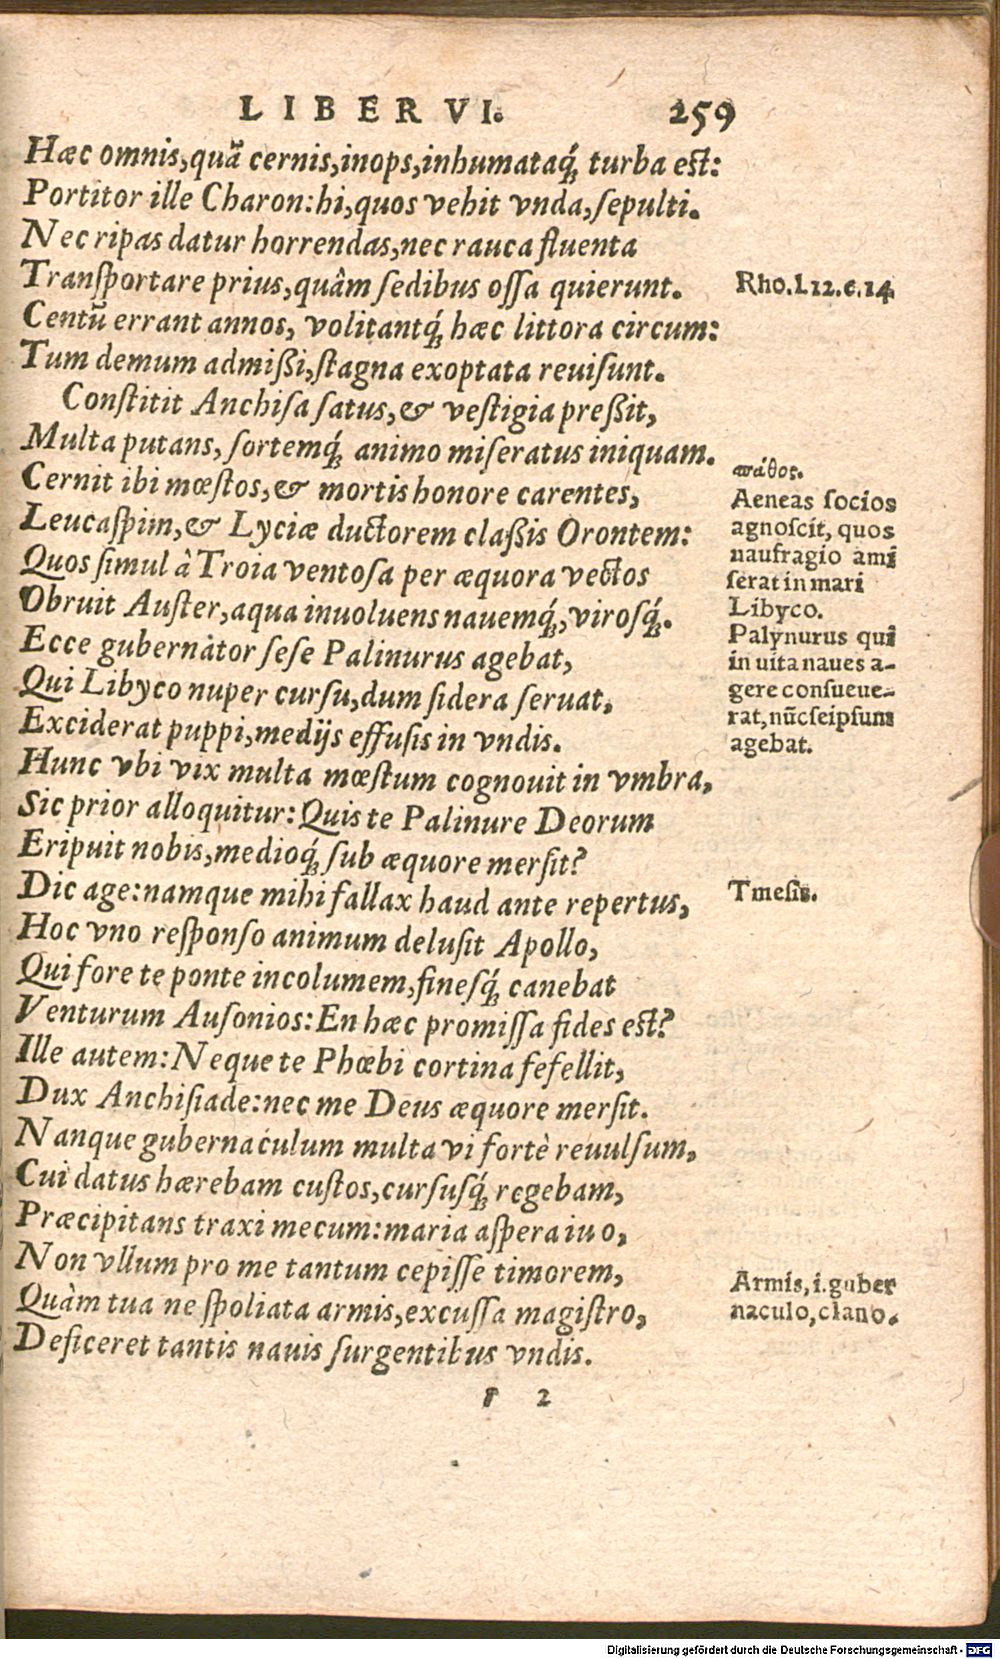 LIBER VI. 259
Hæc omnis,quã cernis,inops,inhumataq́; turba est:
Portitor ille Charon:hi,quos vehit vnda,ſepulti.
Nec ripas datur horrendas,nec rauca fluenta
Tranſportare prius,quàm ſedibus oſſa quierunt.
Rho.l.12.c.14.
Centũ errant annos, volitantq́; hæc littora circum:
Tum demum admißi,ſtagna exoptata reuiſunt.
Conſtitit Anchiſa ſatus,& veſtigia preßit,
Multa putans, ſortemq́; animo miſeratus iniquam.
πάθος.
Cernit ibi mœſtos,& mortis honore carentes,
Leucaſpim,& Lyciæ ductorem claßis Orontem:
Quos ſimul à Troia ventoſa per æquora vectos
Obruit Auſter,aqua inuoluens nauemq́;,viroſq́;.
Aeneas ſocios
agnoſcit, quos
naufragio ami
ſerat in mari
Libyco.
Ecce gubernator ſeſe Palinurus agebat,
Qui Libyco nuper curſu,dum ſidera ſeruat,
Exciderat puppi,medijs effuſis in vndis.
Palynurus qui
in uita naues a-
gere conſueue-
rat,nũc ſeipſum
agebat.
Hunc vbi vix multa mœſtum cognouit in vmbra,
Sic prior alloquitur:Quis te Palinure Deorum
Eripuit nobis,medioq́; ſub æquore merſit?
Dic age:namque mihi fallax haud ante repertus,
Tmeſis.
Hoc vno reſponſo animum deluſit Apollo,
Qui fore te ponte incolumem,fineſq́; canebat
Venturum Auſonios:En hæc promiſſa fides est?
Ille autem:Neque te Phœbi cortina fefellit,
Dux Anchiſiade:nec me Deus æquore merſit.
Nanque gubernaculum multa vi fortè reuulſum,
Cui datus hærebam cuſtos,curſuſq́; regebam,
Præcipitans traxi mecum:maria aſpera iuo,
Non vllum pro me tantum cepiſſe timorem,
Quàm tua ne ſpoliata armis,excuſſa magiſtro,
Deficeret tantis nauis ſurgentibus vndis.
Armis,i.guber
naculo,clauo.
r 2
Digitalisierung gefördert durch die Deutsche Forschungsgemeinschaft - DFG